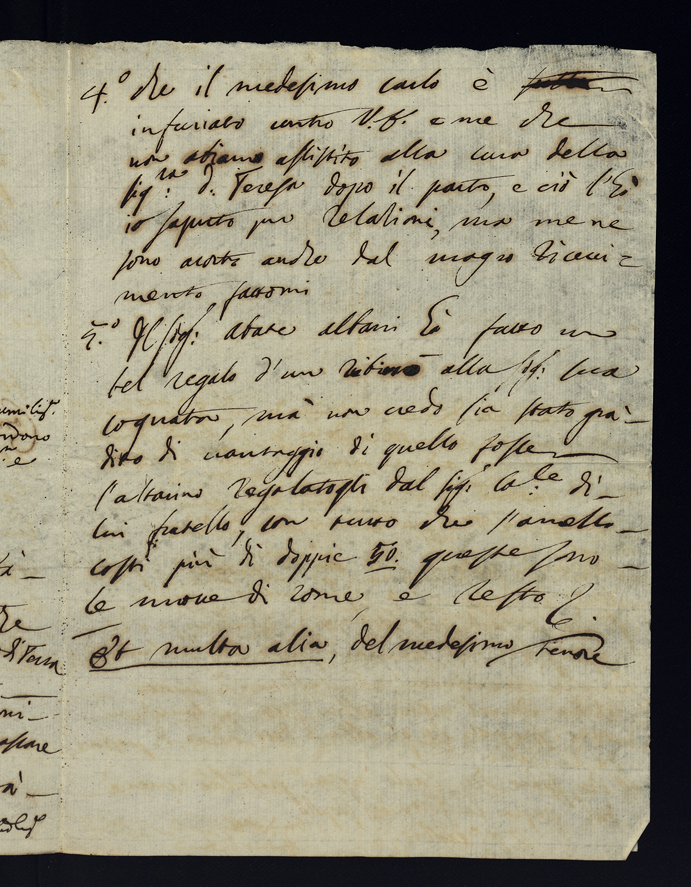 4.º che il medesimo carlo è
infuriato contro V.S. e me che
non abiamo assistito alla cura della
sig.ra d. Teresa dopo il parto, e ciò l'ò
io saputo per relationi, ma me ne
sono acorto anche dal magro ricevi=
mento fattomi
5.º Il sig.r abate albani à fatto un
bel regalo d'un rubino alla sig.ra sua
cognata, mà non credo sia stato grà-
dito di vantaggio di quello fosse
l'altarino regalatogli dal sig.r Ca.le di-
lui fratello, con tutto che l'anello-
costi più di doppie 50. queste sono -
le nuove di rome, e resto
et multa alia, del medesimo tenore